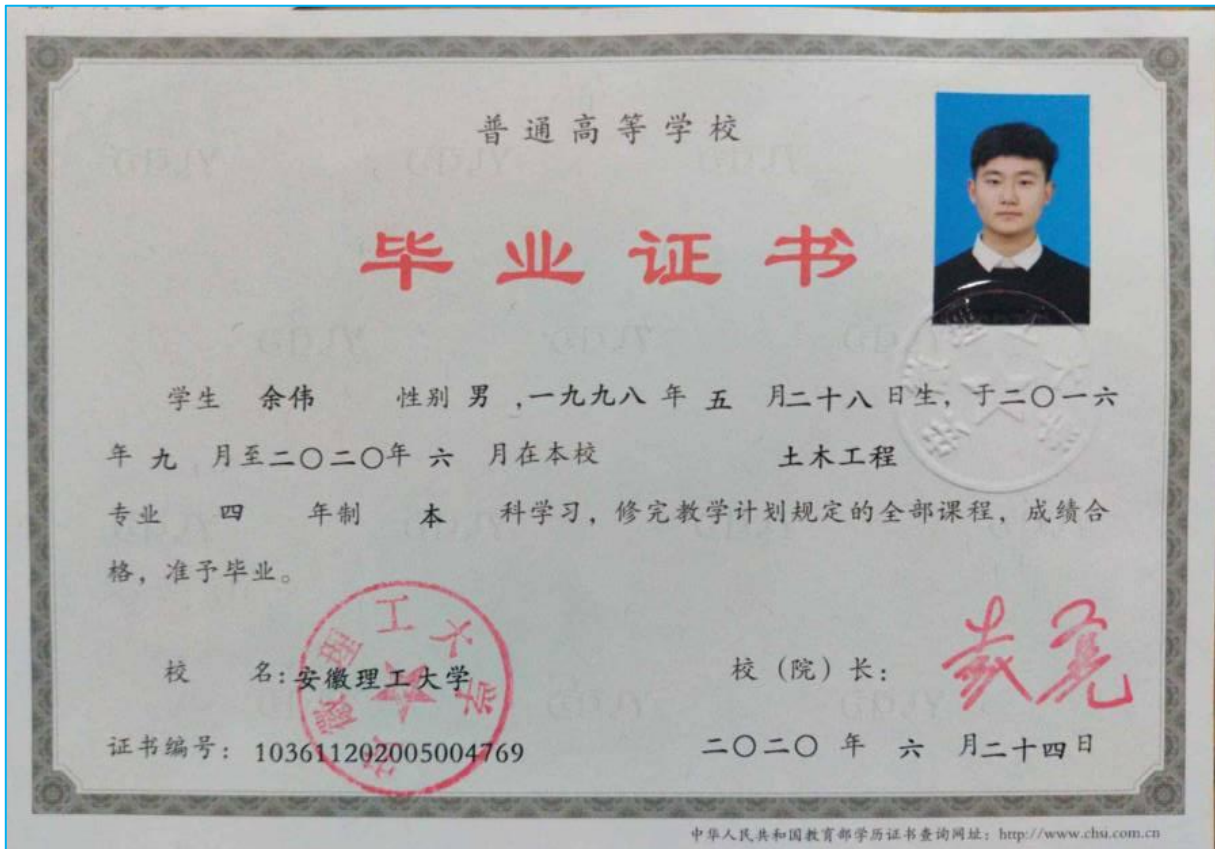 普通高等学校
毕业证书
学生 余伟 性别 男 ,一九九八 年 五 月二十八 日生，于二〇一六
年 九 月至二〇二〇年 六 月在本校 土木工程
专业 四 年制 本 科学习，修完教学计划规定的全部课程，成绩合
格，准予毕业。
校 名:安徽理工大学
安徽理工大学
校（院）长：
证书编号：103611202005004769
二〇二〇 年 六 月二十四日
中华人民共和国教育部学历证书查询网址：http://www.chu.com.cn